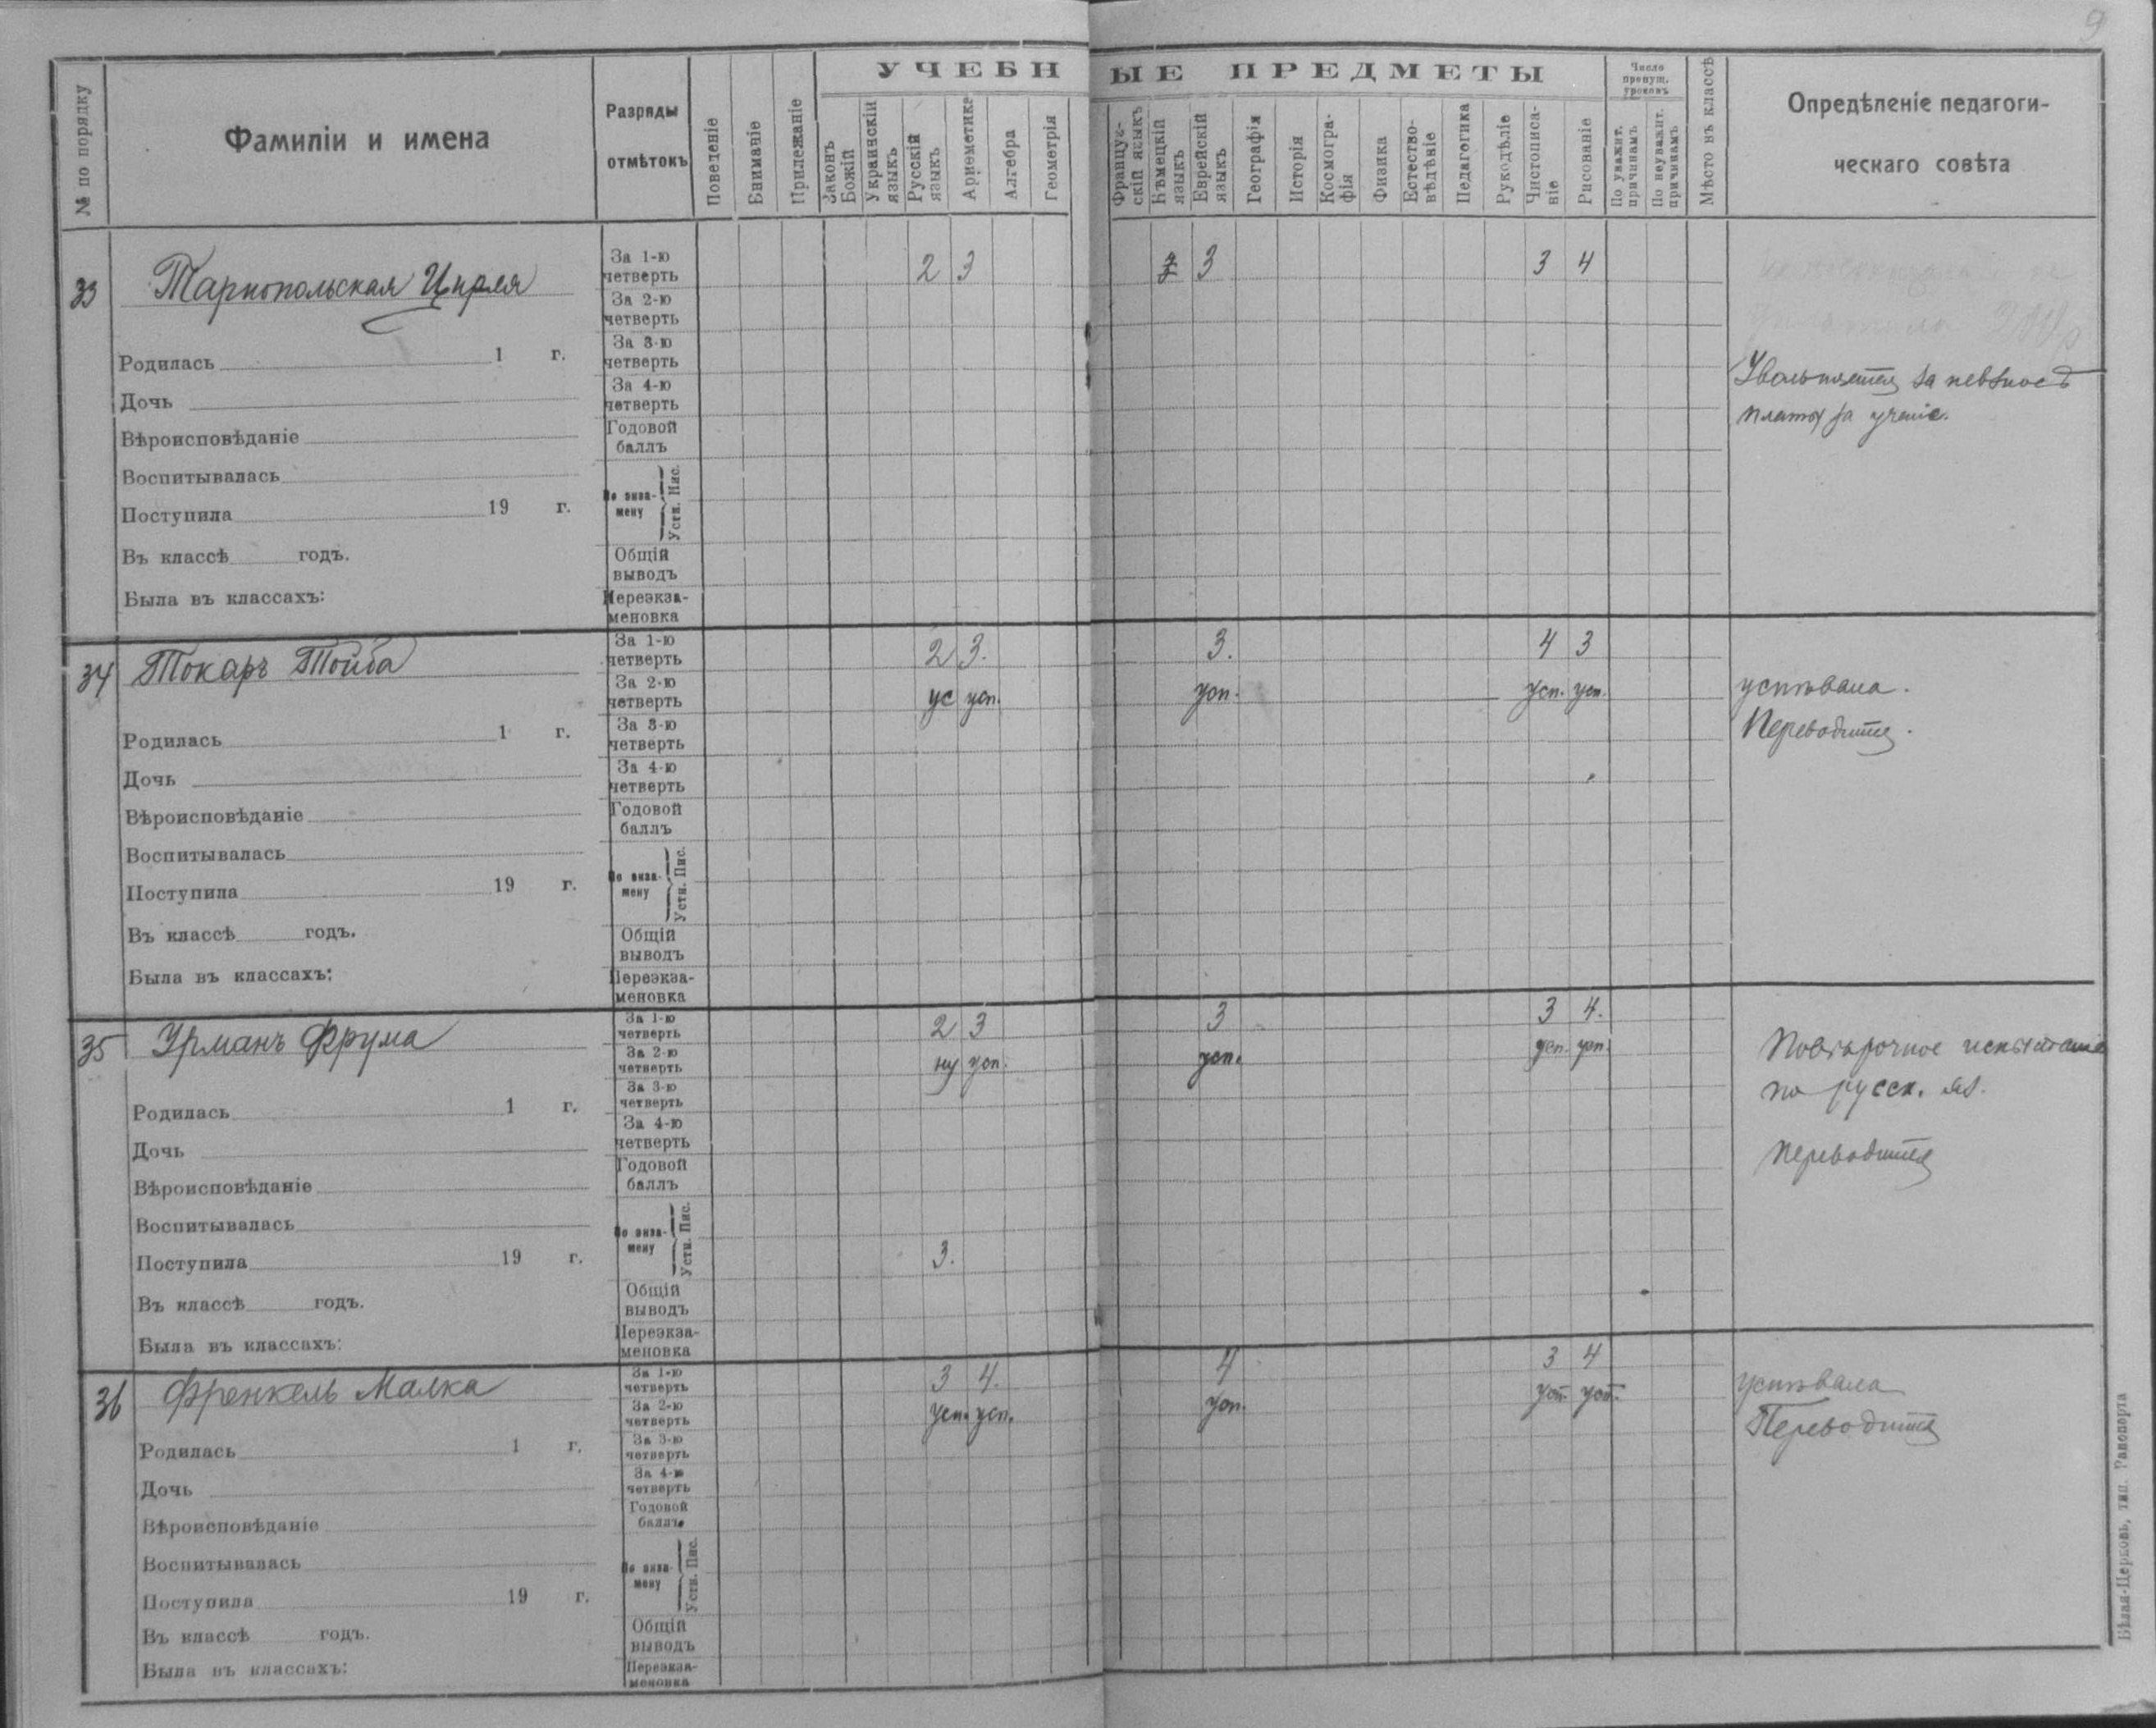 9
УЧЕБНЫЕ ПРЕДМЕТЫ
№ по порядку
Фамиліи и имена
Разряды отмѣтокъ
Поведеніе
Вниманіе
Прилежаніе
Законъ Божій
Украинскій языкъ
Русскій языкъ
Ариѳметика
Алгебра
Геометрія
Француз-скій языкъ
Нѣмецкій языкъ
Еврейскій языкъ
Географія
Исторія
Космогра-фія
Физика
Естество-вѣдѣніе
Педагогика
Рукодѣліе
Чистописа-ніе
Рисованіе
Число пропущ. уроковъ
По уважит. причинамъ
По неуважит. причинамъ
Мѣсто въ классѣ
Опредѣленіе педагоги-
ческаго совѣта
33 Тарнопольская Цирля
Родилась 1 г.
Дочь
Вѣроисповѣданіе
Воспитывалась
Поступила 19 г.
Въ классѣ годъ.
Была въ классахъ:
За 1-ю четверть 2 3 3 3 4
За 2-ю четверть
За 3-ю четверть
За 4-ю четверть
Годовой баллъ
По экза-мену Устн. Пис.
Общій выводъ
Переэкза-меновка
Увольняется за невзносъ
платы за ученіе.
34 Токаръ Тойба
Родилась 1 г.
Дочь
Вѣроисповѣданіе
Воспитывалась
Поступила 19 г.
Въ классѣ годъ.
Была въ классахъ:
За 1-ю четверть 2 3. 3. 4 3
За 2-ю четверть ус усп. усп. усп. усп.
За 3-ю четверть
За 4-ю четверть
Годовой баллъ
По экза-мену Устн. Пис.
Общій выводъ
Переэкза-меновка
успѣвала.
Переводится.
35 Урманъ Фрума
Родилась 1 г.
Дочь
Вѣроисповѣданіе
Воспитывалась
Поступила 19 г.
Въ классѣ годъ.
Была въ классахъ:
За 1-ю четверть 2 3 3 3 4.
За 2-ю четверть ну усп. усп. усп. усп.
За 3-ю четверть
За 4-ю четверть
Годовой баллъ
По экза-мену Устн. Пис. 3.
Общій выводъ
Переэкза-меновка
Повѣрочное испытаніе
по русск. яз.
переводится
36 Френкель Малка
Родилась 1 г.
Дочь
Вѣроисповѣданіе
Воспитывалась
Поступила 19 г.
Въ классѣ годъ.
Была въ классахъ:
За 1-ю четверть 3 4. 4 3 4
За 2-ю четверть усп. усп. усп. усп. усп.
За 3-ю четверть
За 4-ю четверть
Годовой баллъ
По экза-мену Устн. Пис.
Общій выводъ
Переэкза-меновка
успѣвала
Переводится
Бѣлая-Церковь, тип. Рапопорта